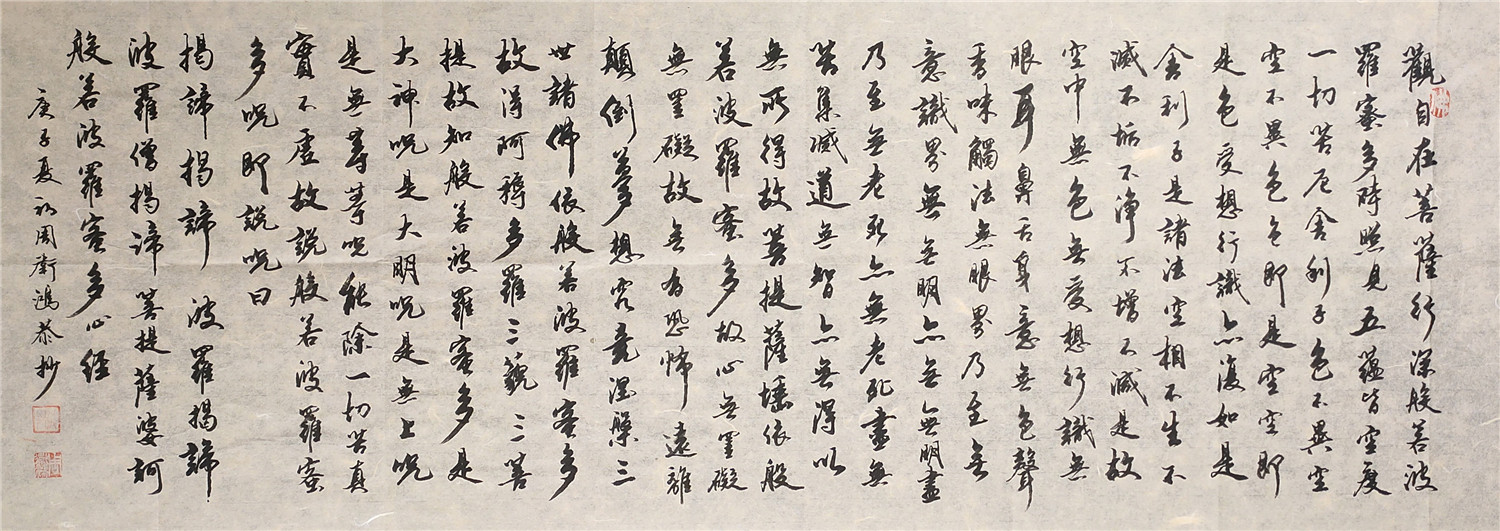 觀自在菩薩行深般若波
羅蜜多時照見五蘊皆空度
一切苦厄舍利子色不異空
空不異色色即是空空即
是色受想行識亦復如是
舍利子是諸法空相不生不
滅不垢不淨不增不減是故
空中無色無受想行識無
眼耳鼻舌身意無色聲
香味觸法無眼界乃至無
意識界無無明亦無無明盡
乃至無老死亦無老死盡無
苦集滅道無智亦無得以
無所得故菩提薩埵依般
若波羅蜜多故心無罣礙
無罣礙故無有恐怖遠離
顛倒夢想究竟涅槃三
世諸佛依般若波羅蜜多
故得阿耨多羅三藐三菩
提故知般若波羅蜜多是
大神咒是大明咒是無上咒
是無等等咒能除一切苦真
實不虛故說般若波羅蜜
多咒即說咒曰
揭諦揭諦 波羅揭諦
波羅僧揭諦 菩提薩婆訶
般若波羅蜜多心經
庚子夏初周衛鴻恭抄